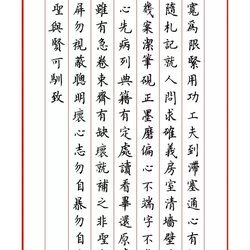 寬爲限緊用功工夫到滯塞通心有
隨札記就人問求確義房室清牆壁
幾案潔筆硯正墨磨偏心不端字不
心先病列典籍有定處讀看畢還原
雖有急卷束齊有缺壞就補之非聖
屏勿視蔽聰明壞心志勿自暴勿自
聖與賢可馴致